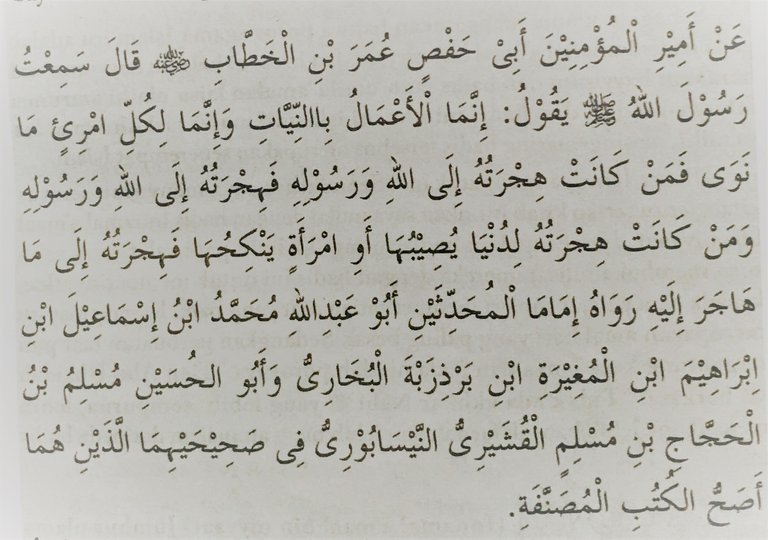 عَنْ أَمِيْرِ الْمُؤْمِنِيْنَ أَبِيْ حَفْصٍ عُمَرَ بْنِ الْخَطَّابِ ﷺ قَالَ سَمِعْتُ
رَسُوْلَ اللهُ ﷺ يَقُوْلُ: إِنَّمَا الْأَعْمَالُ بِاالنِّيَّاتِ وَإِنَّمَا لِكُلِّ امْرِئٍ مَا
نَوَى فَمَنْ كَانَتْ هِجْرَتُهُ إِلَى اللهِ وَرَسُوْلِهِ فَهِجْرَتُهُ إِلَى اللهِ وَرَسُوْلِهِ
وَمَنْ كَانَتْ هِجْرَتُهُ لدُنْيَا يُصِيْبُهَا أَوِ امْرَأَةٍ يَنْكِحُهَا فَهِجْرَتُهُ إِلَى مَا
هَاجَرَ إِلَيْهِ رَوَاهُ إِمَامَا الْمُحَدِّثَيْن أَبُوْ عَبْدِاللهِ مُحَمَّدُ ابْنُ إِسْمَاعَيْلَ ابْنِ
اِبْرَاهِيْمَ ابْنِ الْمُغِيْرَة ابْنِ بَرْدِزَبْةَ الْبُخَارِىُّ وَأَبُو الحُسَيْنِ مُسْلِمُ بْنُ
الْحَجَّاجِ بْنِ مُسْلِمٍ الْقُشَيْرِىُّ النَّيْسَابُوْرِىُّ فِى صَحِيْحَيْهِمَا الَّذَيْنِ هُمَا
أَصَحُّ الكُتُبِ الْمُصَنَّفَةِ.